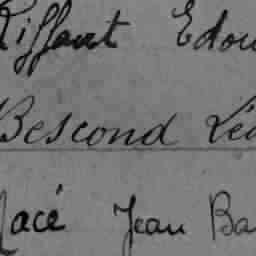 Riffart Edou
Bescond Léo
Macé Jean Ba